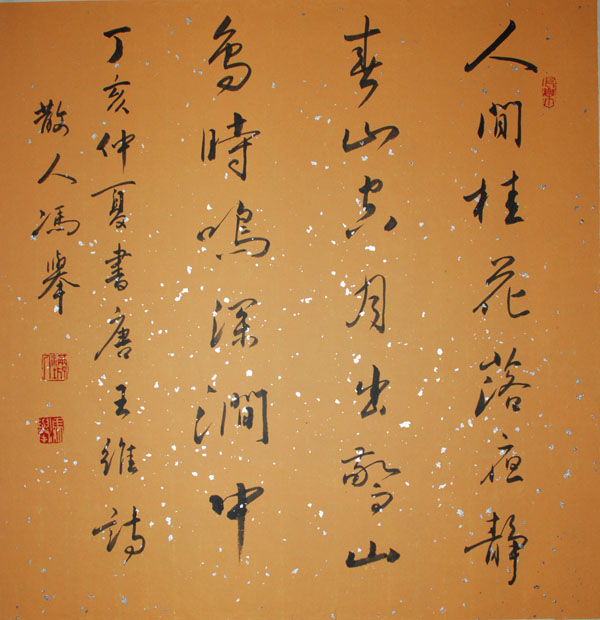 人閒桂花落夜靜
春山空月出驚山
鳥時鳴深澗中
丁亥仲夏書唐王維詩
散人馮舉